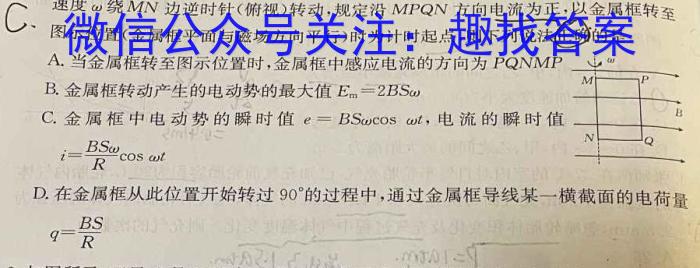 C.
速度 ω 绕 MN 边逆时针(俯视)转动,规定沿 MPQN 方向电流为正,以金属框转至
图示位置(金属框平面与磁场方向平行)时为计时起点
微信公众号关注:趣找答案
A. 当金属框转至图示位置时,金属框中感应电流的方向为 PQNMP
B. 金属框转动产生的电动势的最大值 Eₘ=2BSω
C. 金属框中电动势的瞬时值 e = BSωcos ωt,电流的瞬时值
i=BSω/R cos ωt
D. 在金属框从此位置开始转过 90°的过程中,通过金属框导线某一横截面的电荷量
q=BS/R
ω
M P
B
N Q